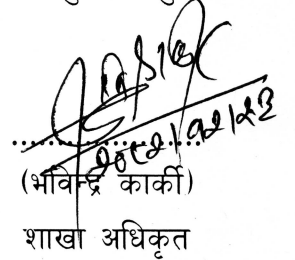 २०८२।१२।२३
(भविन्द्र कार्की)
शाखा अधिकृत